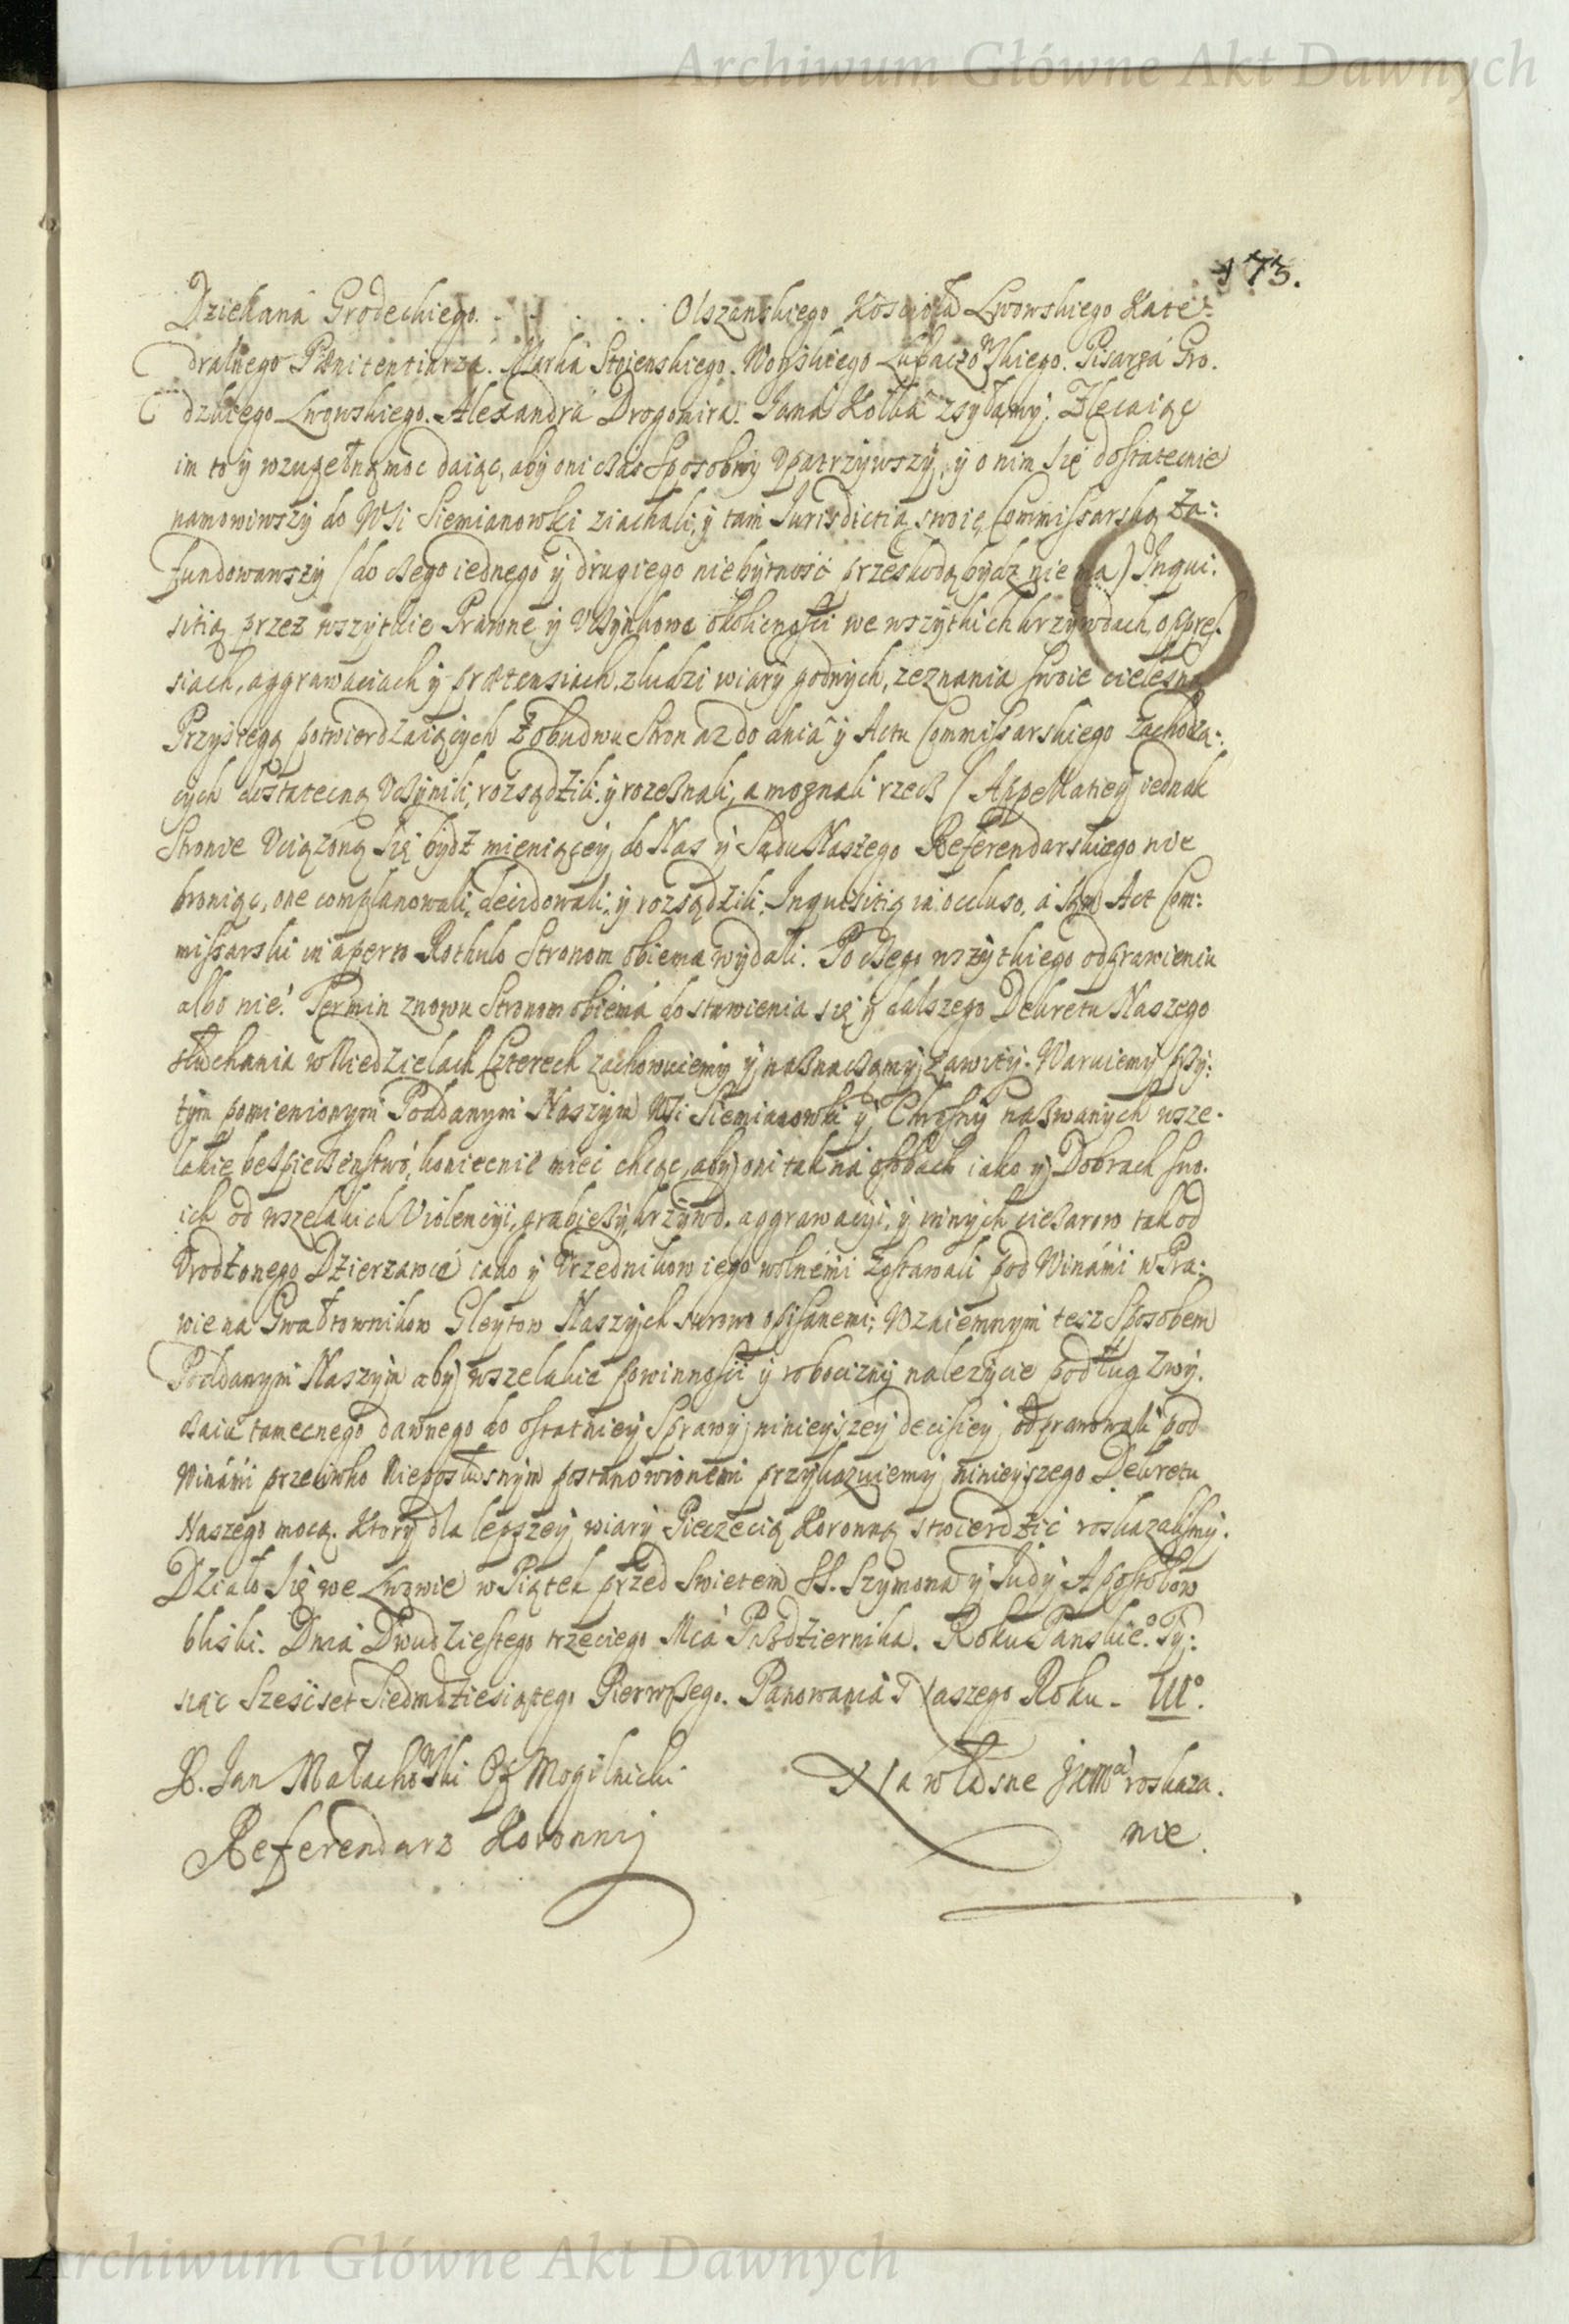 Archiwum Główne Akt Dawnych
173.
Dziekana Grodeckiego. . . . . . Olszanskiego Kościoła Lwowskiego Kate-
dralnego Pænitentiarza. Marka Stoienskiego. Woyskiego Lubaczowskiego. Pisarza Gro.
dzkiego Lwowskiego. Alexandra Drogomira. Jana Kolba zsyłamy. Zlecaiąc
im to y wzupełną moc daiąc, aby oni czas sposobny upatrzywszy, y o nim się dostatecnie
namowiwszy do Wsi Siemianowki ziachali, y tam Jurisdictią swoię Commissarską za:
fundowawszy (do czego iednego y drugiego niebytność przeskodą bydz nie ma) Inqui:
sitią przez wszytkie Prawne y Uczynkowe okolicności we wszytkich krzywdach, oppres.
siach, aggrawaciach y prætensiach, z ludzi wiary godnych, zeznania swoie cielesną
Przysięgą potwierdzaiących z obudwu stron az do dnia y Actu Commissarskiego zachodzą:
cych dostatecną uczynili, rozsądzili y rozeznali, a moznali rzecz (Appellatiey iednak
Stronie uciązoną się bydz mieniącey do Nas y Sądu Naszego Referendarskiego nie
broniąc, one complanowali, decidowali, y rozsądzili. Inquisitią in occluso, a sam Act Com:
missarski in aperto Rothulo Stronom obiema wydali. Po czego wszytkiego odprawieniu
albo nie. Termin znowu Stronom obiema do stawienia się y dalszego Dekretu Naszego
słuchania w Niedzielach Czterech zachowuiemy y naznaczamy zawity. Waruiemy przy:
tym pomienionym Poddanym Naszym Wsi Siemianowki y Chrosny nazwanych wsze.
lakie bespieczenstwo, koniecnie miec chcąc, aby oni tak na osobach iako y Dobrach swo.
ich od wszelakich Violencyi, grabiezy, krzywd, aggrawacyi, y innych ciezarow tak od
Urodzonego Dzierzawce iako y Urzednikow iego wolnemi zostawali pod Winami w Pra:
wie na Gwałtownikow Gleytow Naszych surowo opisanemi; Wzaiemnym tesz sposobem
Poddanym Naszym aby wszelakie powinności y robocizny nalezycie podług zwy.
czaiu tamecnego dawnego do ostatniey Sprawy ninieyszey decisiey odprawowali pod
Winami przeciwko Nieposłusnym postanowionemi przykazuiemy ninieyszego Dekretu
Naszego mocą. Ktory dla lepszey wiary Pieczecią Koronną stwierdzic roskazalismy.
Działo się we Lwowie w Piątek przed Swietem SS. Szymona y Judy Apostołow
bliski. Dnia Dwudziestego trzeciego Mca Pazdziernika. Roku Panskieº. Ty:
siąc Szescset Siedmdziesiątego Pierwszego. Panowania Naszego Roku - IIIº.
X. Jan Małachowski Op Mogilnicki
Referendarz Koronny
Na własne JKMci roskaza.
nie.
Archiwum Główne Akt Dawnych